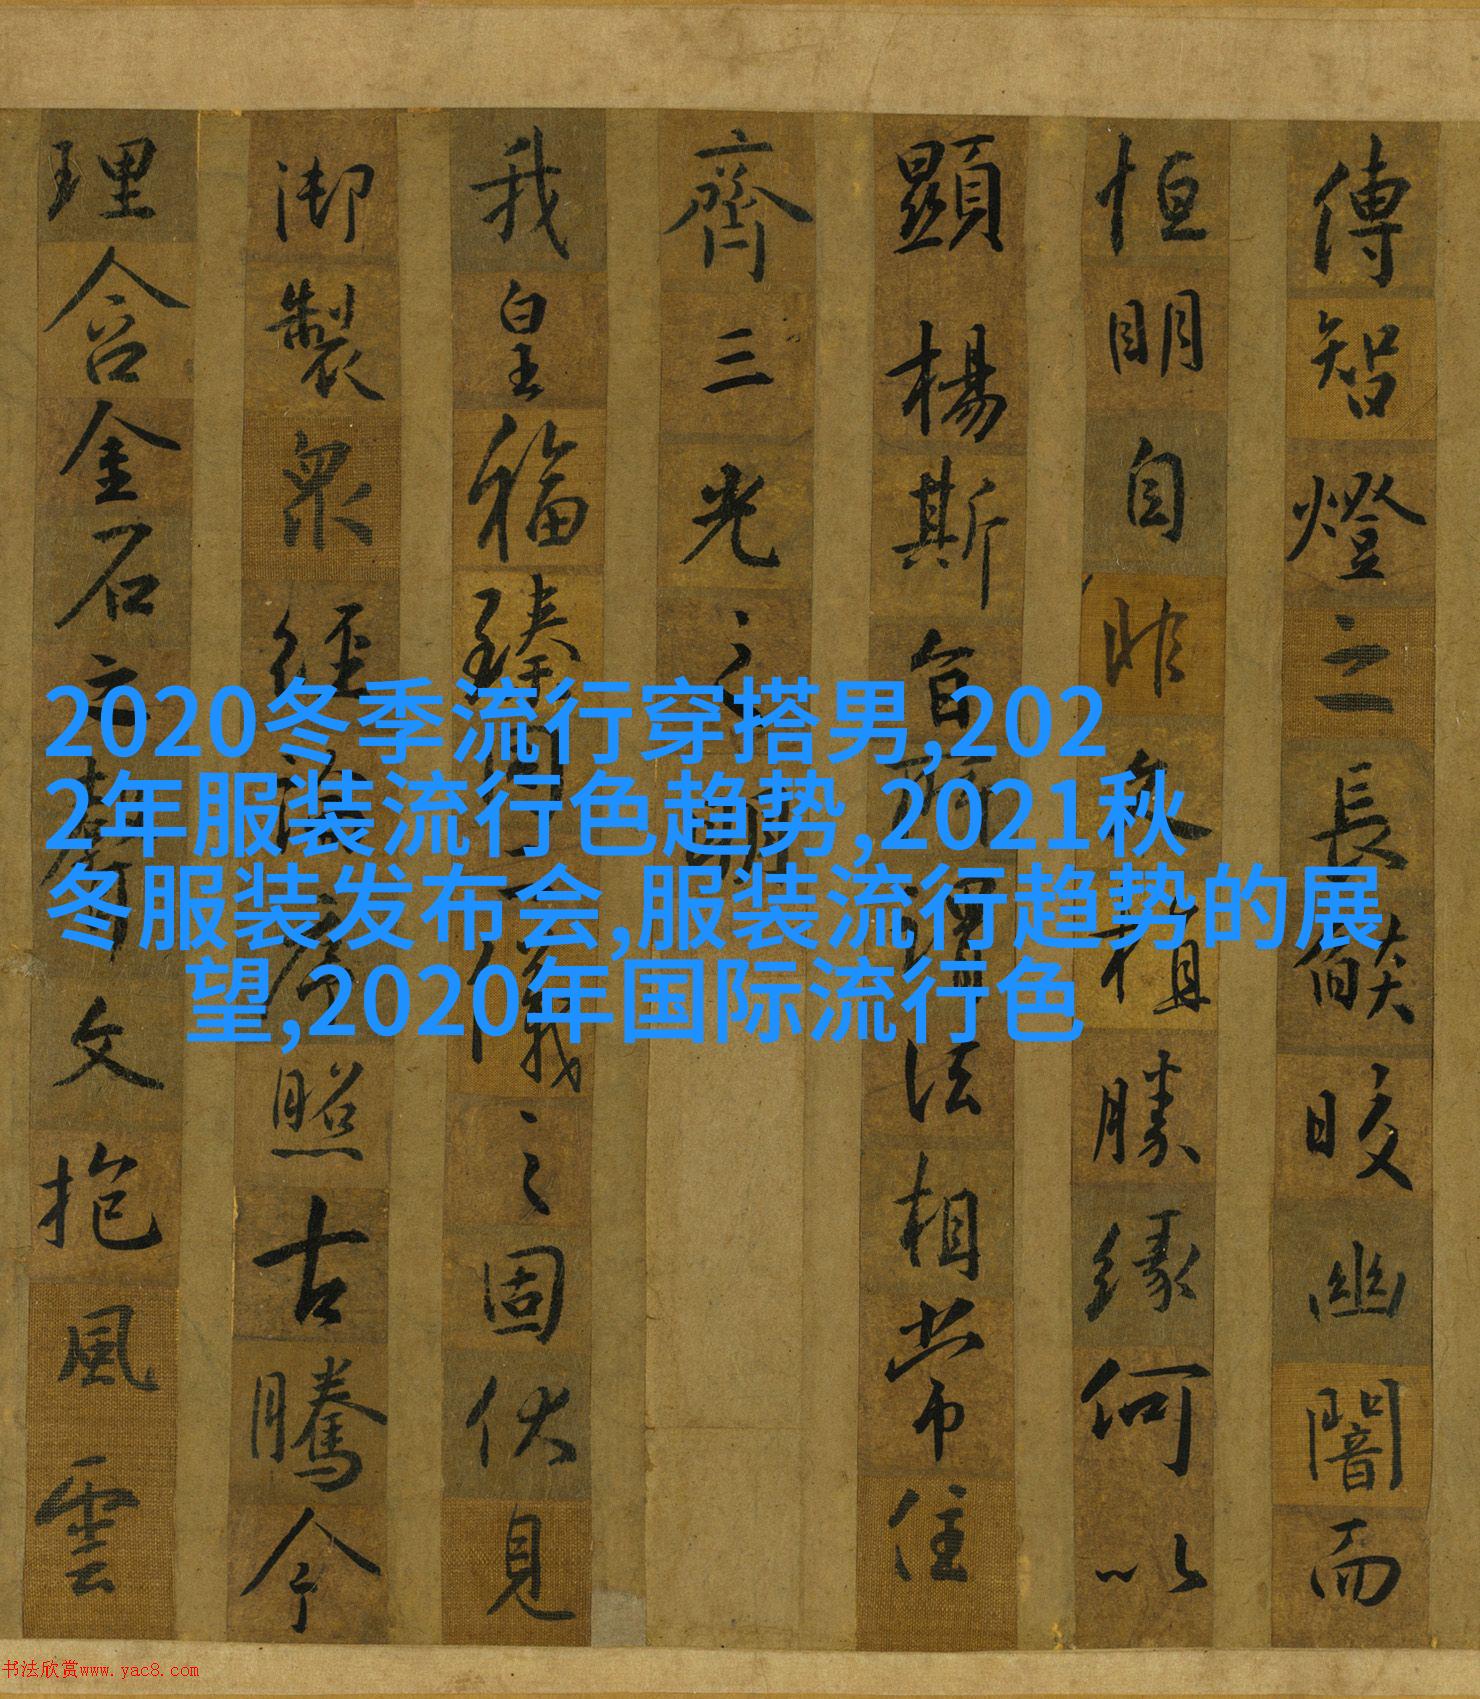 傳智燈之長燄皎幽闇而
恒明自非久植勝緣何以
顯揚斯旨所謂法相常住
齊三光之明
我皇福臻同二儀之固伏見
御製眾經論序照古騰今
理含金石之聲文抱風雲
2020冬季流行穿搭男,202
2年服装流行色趋势,2021秋
冬服装发布会,服装流行趋势的展
望,2020年国际流行色
书法欣赏www.yac8.com